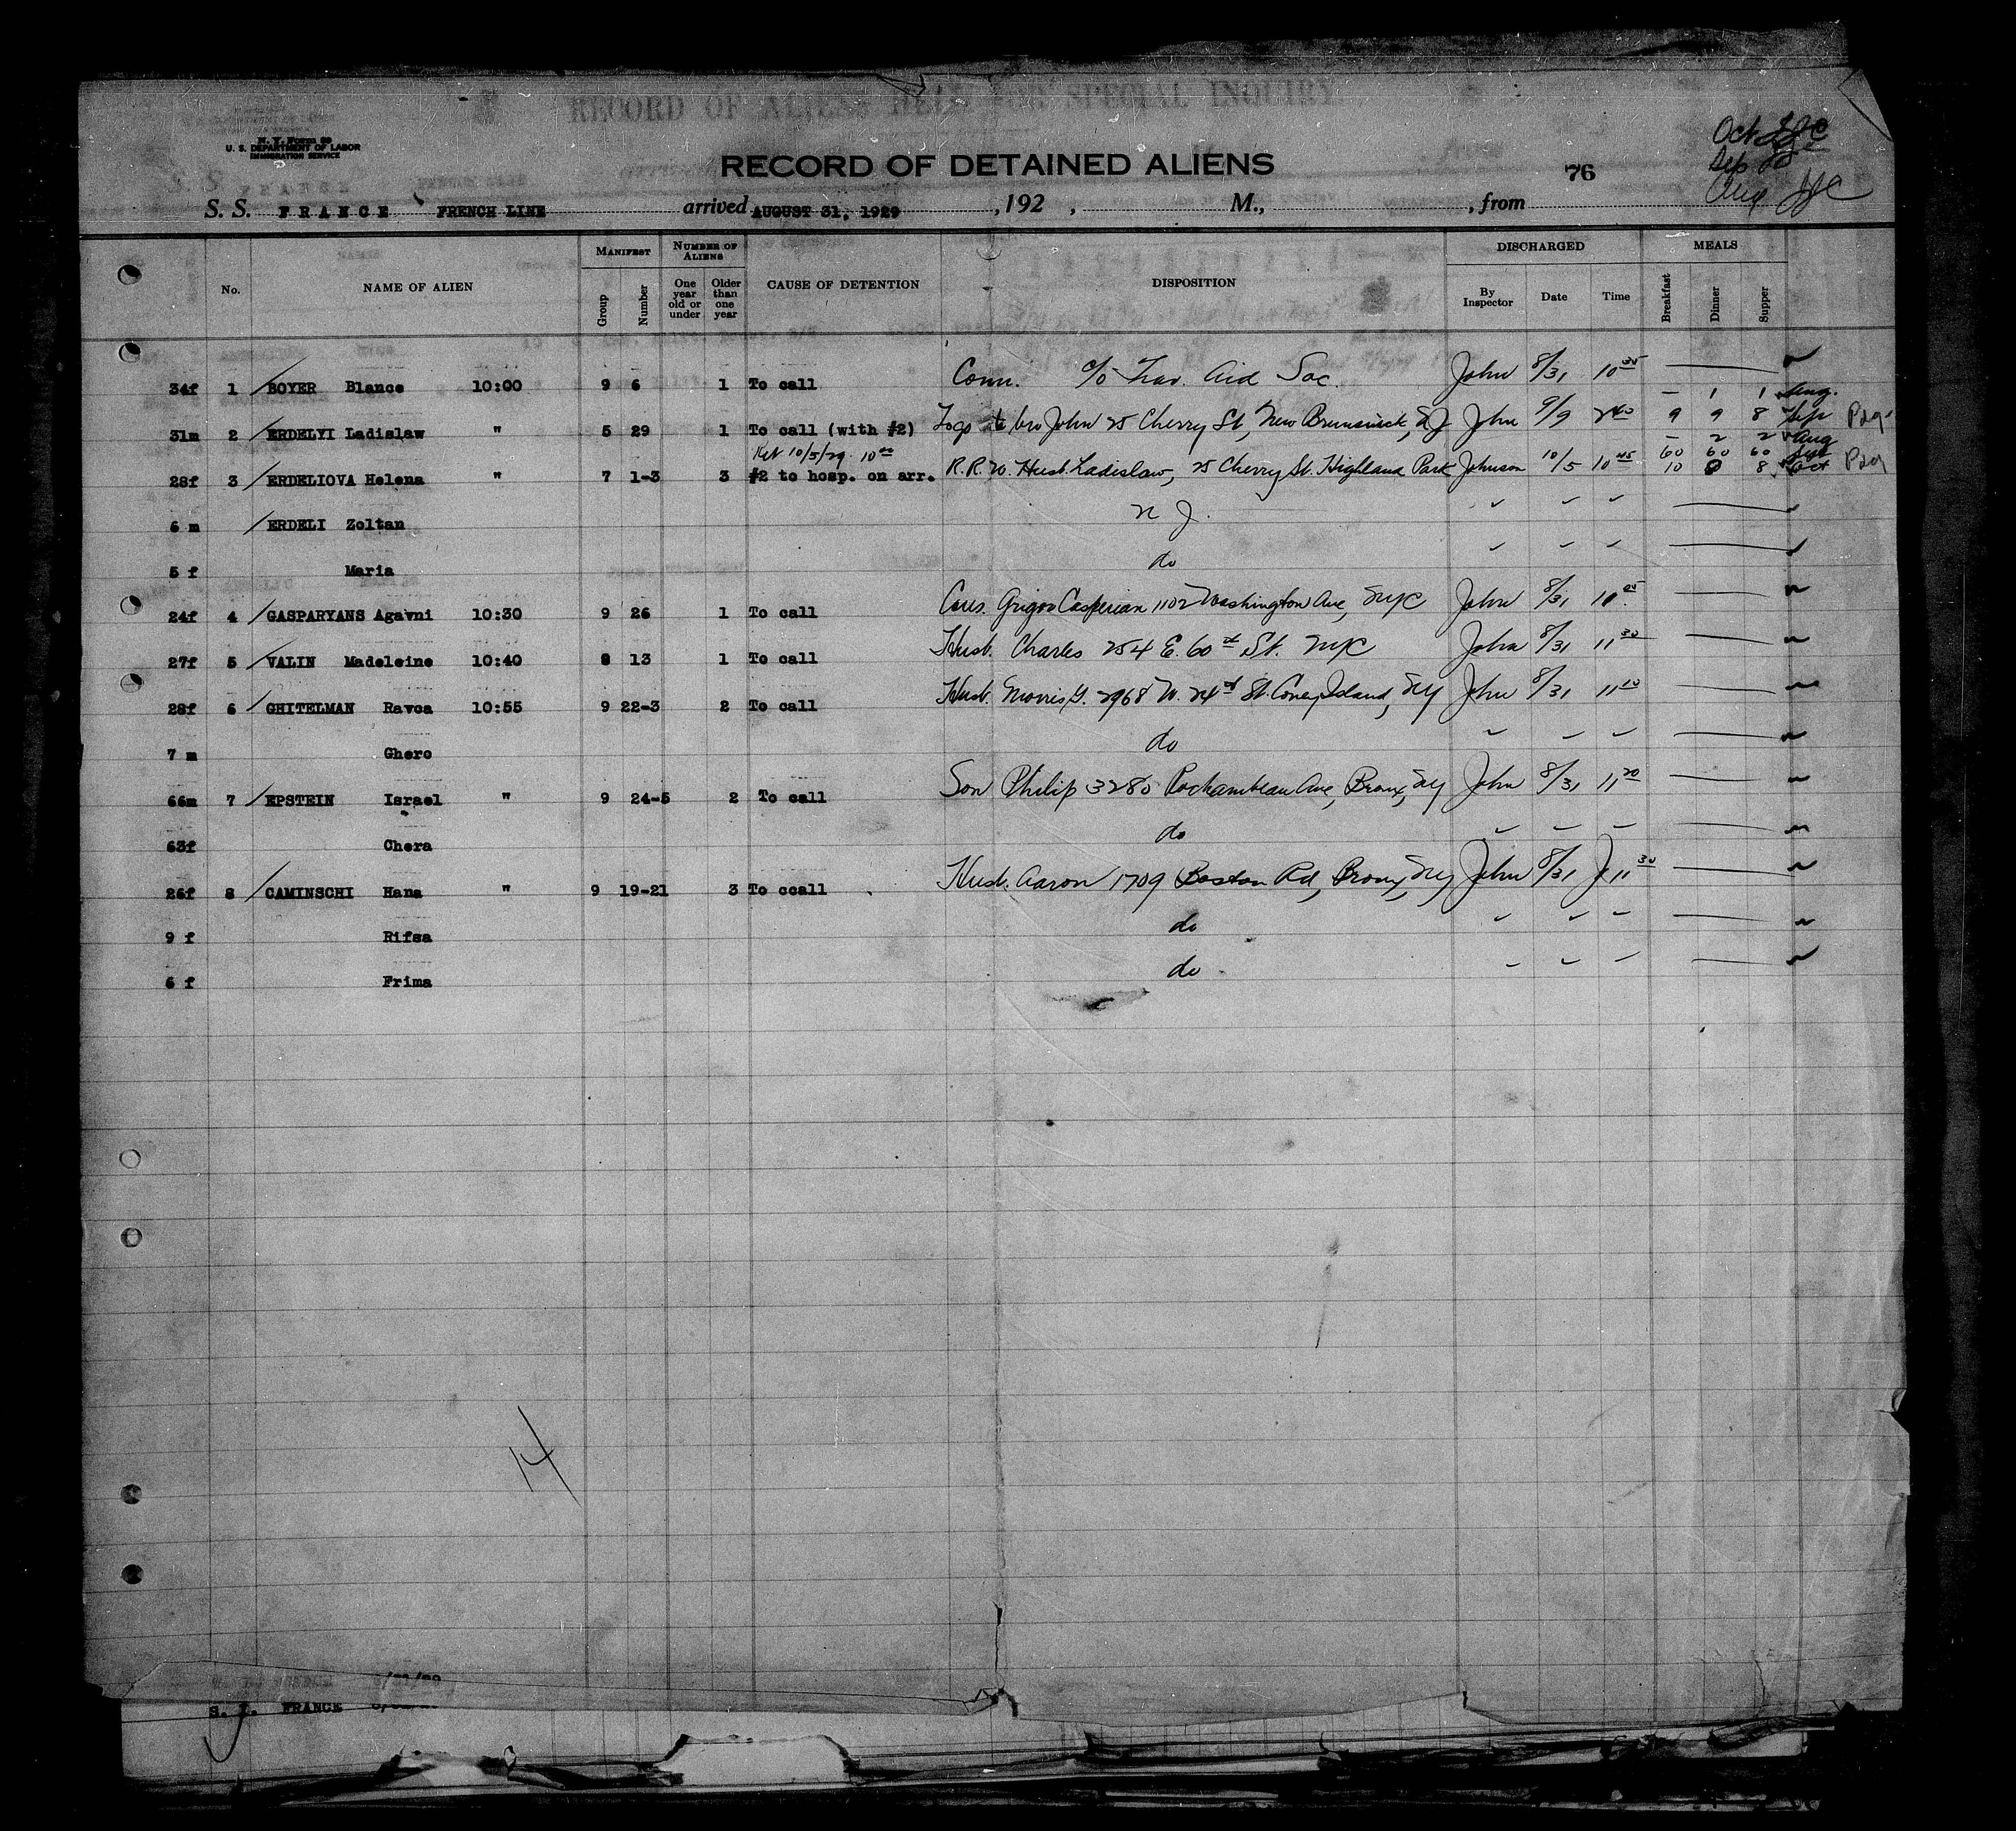 RECORD OF ALIENS HELD FOR SPECIAL INQUIRY
N. Y. Form 89
U. S. DEPARTMENT OF LABOR
IMMIGRATION SERVICE
RECORD OF DETAINED ALIENS
76
Oct
Sep
Aug
S. S. FRANCE FRENCH LINE arrived AUGUST 31, 1929 , 192 , M., , from
No. NAME OF ALIEN MANIFEST Group Number NUMBER OF ALIENS One year old or under Older than one year CAUSE OF DETENTION DISPOSITION DISCHARGED By Inspector Date Time MEALS Breakfast Dinner Supper
34f 1 / BOYER Blance 10:00 9 6 1 To call Conn. c/o Trav. Aid Soc. John 8/31 10 35
— 1 1 Aug.
31m 2 / ERDELYI Ladislaw " 5 29 1 To call (with #2) To go to bro John 25 Cherry St, New Brunswick, NJ John 9/9 2 40 9 9 8 Sep
Ret 10/5/29 10 00 — 2 2 Aug
60 60 60 Sept
28f 3 / ERDELIOVA Helena " 7 1-3 3 #2 to hosp. on arr. R.R.W. Husb. Ladislaw, 25 Cherry St. Highland Park Johnson 10/5 10 45 10 8 Oct
6 m / ERDELI Zoltan N J.
5 f Maria do
24f 4 / GASPARYANS Agavni 10:30 9 26 1 To call Cous. Grigor Casperian 1102 Washington Ave, NYC John 8/31
27f 5 / VALIN Madeleine 10:40 8 13 1 To call Husb. Charles 254 E. 60th St. NYC John 8/31 11 30
28f 6 / GHITELMAN Ravca 10:55 9 22-3 2 To call Husb. Morris G. 2968 W. 24th St. Coney Island, NY John 8/31 11 10
7 m Ghero do
66m 7 / EPSTEIN Israel " 9 24-5 2 To call Son Philip 3280 Rochambeau Ave, Bronx, NY John 8/31 11 20
63f Chera do
26f 8 / CAMINSCHI Hana " 9 19-21 3 To ccall Husb. Aaron 1709 Boston Rd, Bronx, NY John 8/31 11 30
9 f Rifsa do
6 f Frima do
14
S. I. FRANCE